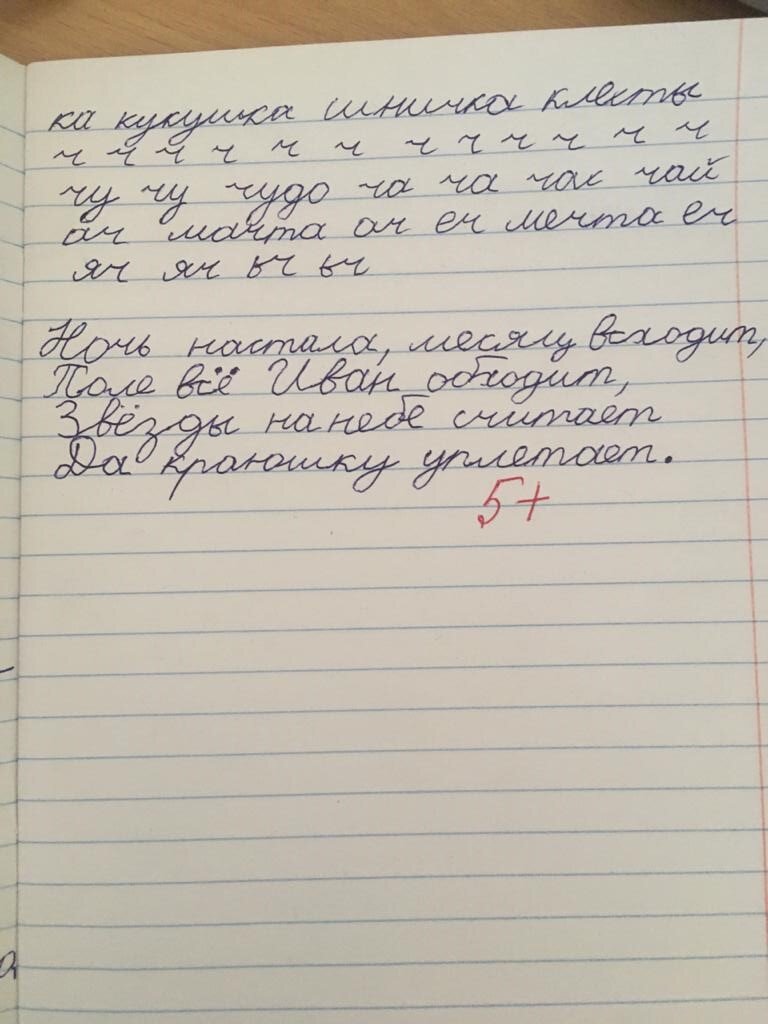 ка кукушка синичка клесты
ч ч ч ч ч ч ч ч ч ч ч ч
чу чу чудо ча ча час чай
ач мачта ач еч мечта еч
яч яч ьч ьч
Ночь настала, месяц всходит,
Поле всё Иван обходит,
Звёзды на небе считает
Да краюшку уплетает.
5+